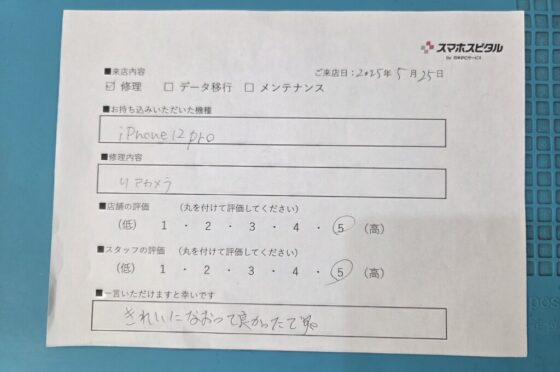 スマホスピタル
by 日本PCサービス
■来店内容
ご来店日：2025年5月25日
☑ 修理 □ データ移行 □ メンテナンス
■お持ち込みいただいた機種
iPhone12pro
■修理内容
リアカメラ
■店舗の評価 （丸を付けて評価してください）
（低） 1 ・ 2 ・ 3 ・ 4 ・ 5 （高）
■スタッフの評価 （丸を付けて評価してください）
（低） 1 ・ 2 ・ 3 ・ 4 ・ 5 （高）
■一言いただけますと幸いです
きれいになおって良かったです。